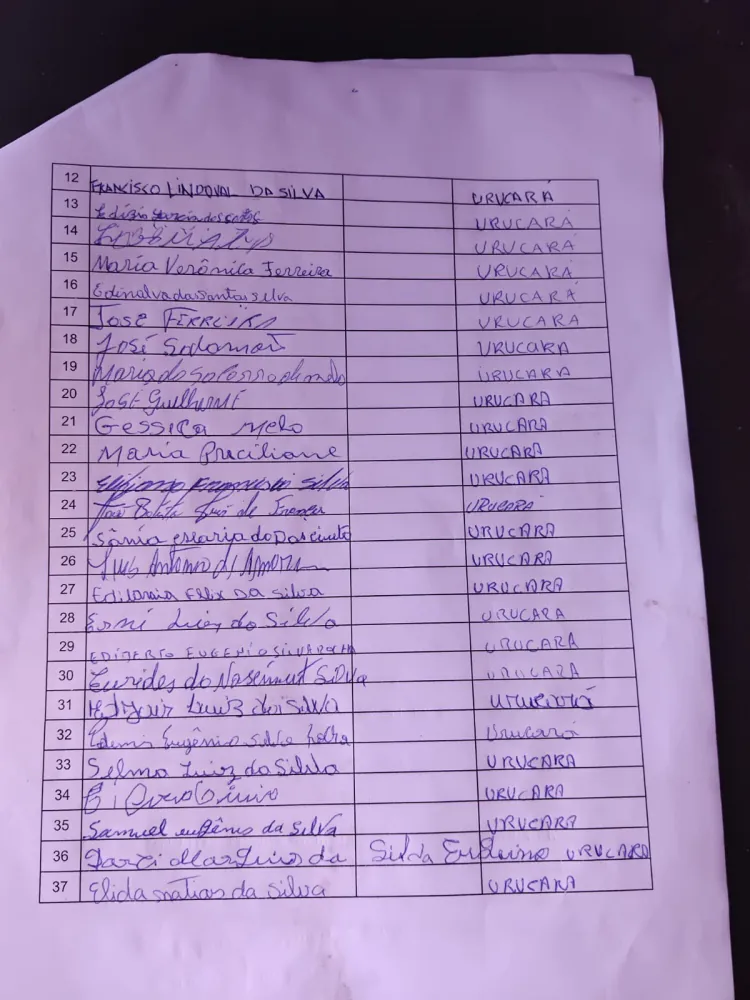 12 FRANCISCO LINDOVAL DA SILVA URUCARÁ
13 URUCARÁ
14 URUCARÁ
15 Maria Verônica Ferreira URUCARÁ
16 Edinalva dos Santos Silva URUCARÁ
17 JOSE FERREIRA URUCARA
18 José Salomão URUCARA
19 Maria do Socorro URUCARA
20 José Guilherme URUCARA
21 Gessica Melo URUCARA
22 Maria Praciliane URUCARA
23 Francisco Silva URUCARÁ
24 de França URUCARÁ
25 Sânia Maria do Nascimento URUCARA
26 Luis Antonio URUCARA
27 Edilania Felix da Silva URUCARA
28 Luiz da Silva URUCARA
29 EDIBERTO EUGENIO SILVA ROCHA URUCARÁ
30 Eurides do Nascimento Silva URUCARA
31 Luiz da Silva Urucará
32 Eugênio Silva Rocha Urucará
33 Selma Luiz da Silva URUCARA
34 URUCARA
35 Samuel eugênio da Silva URUCARA
36 Martins da Silva URUCARÁ
37 Elida Matias da Silva URUCARÁ